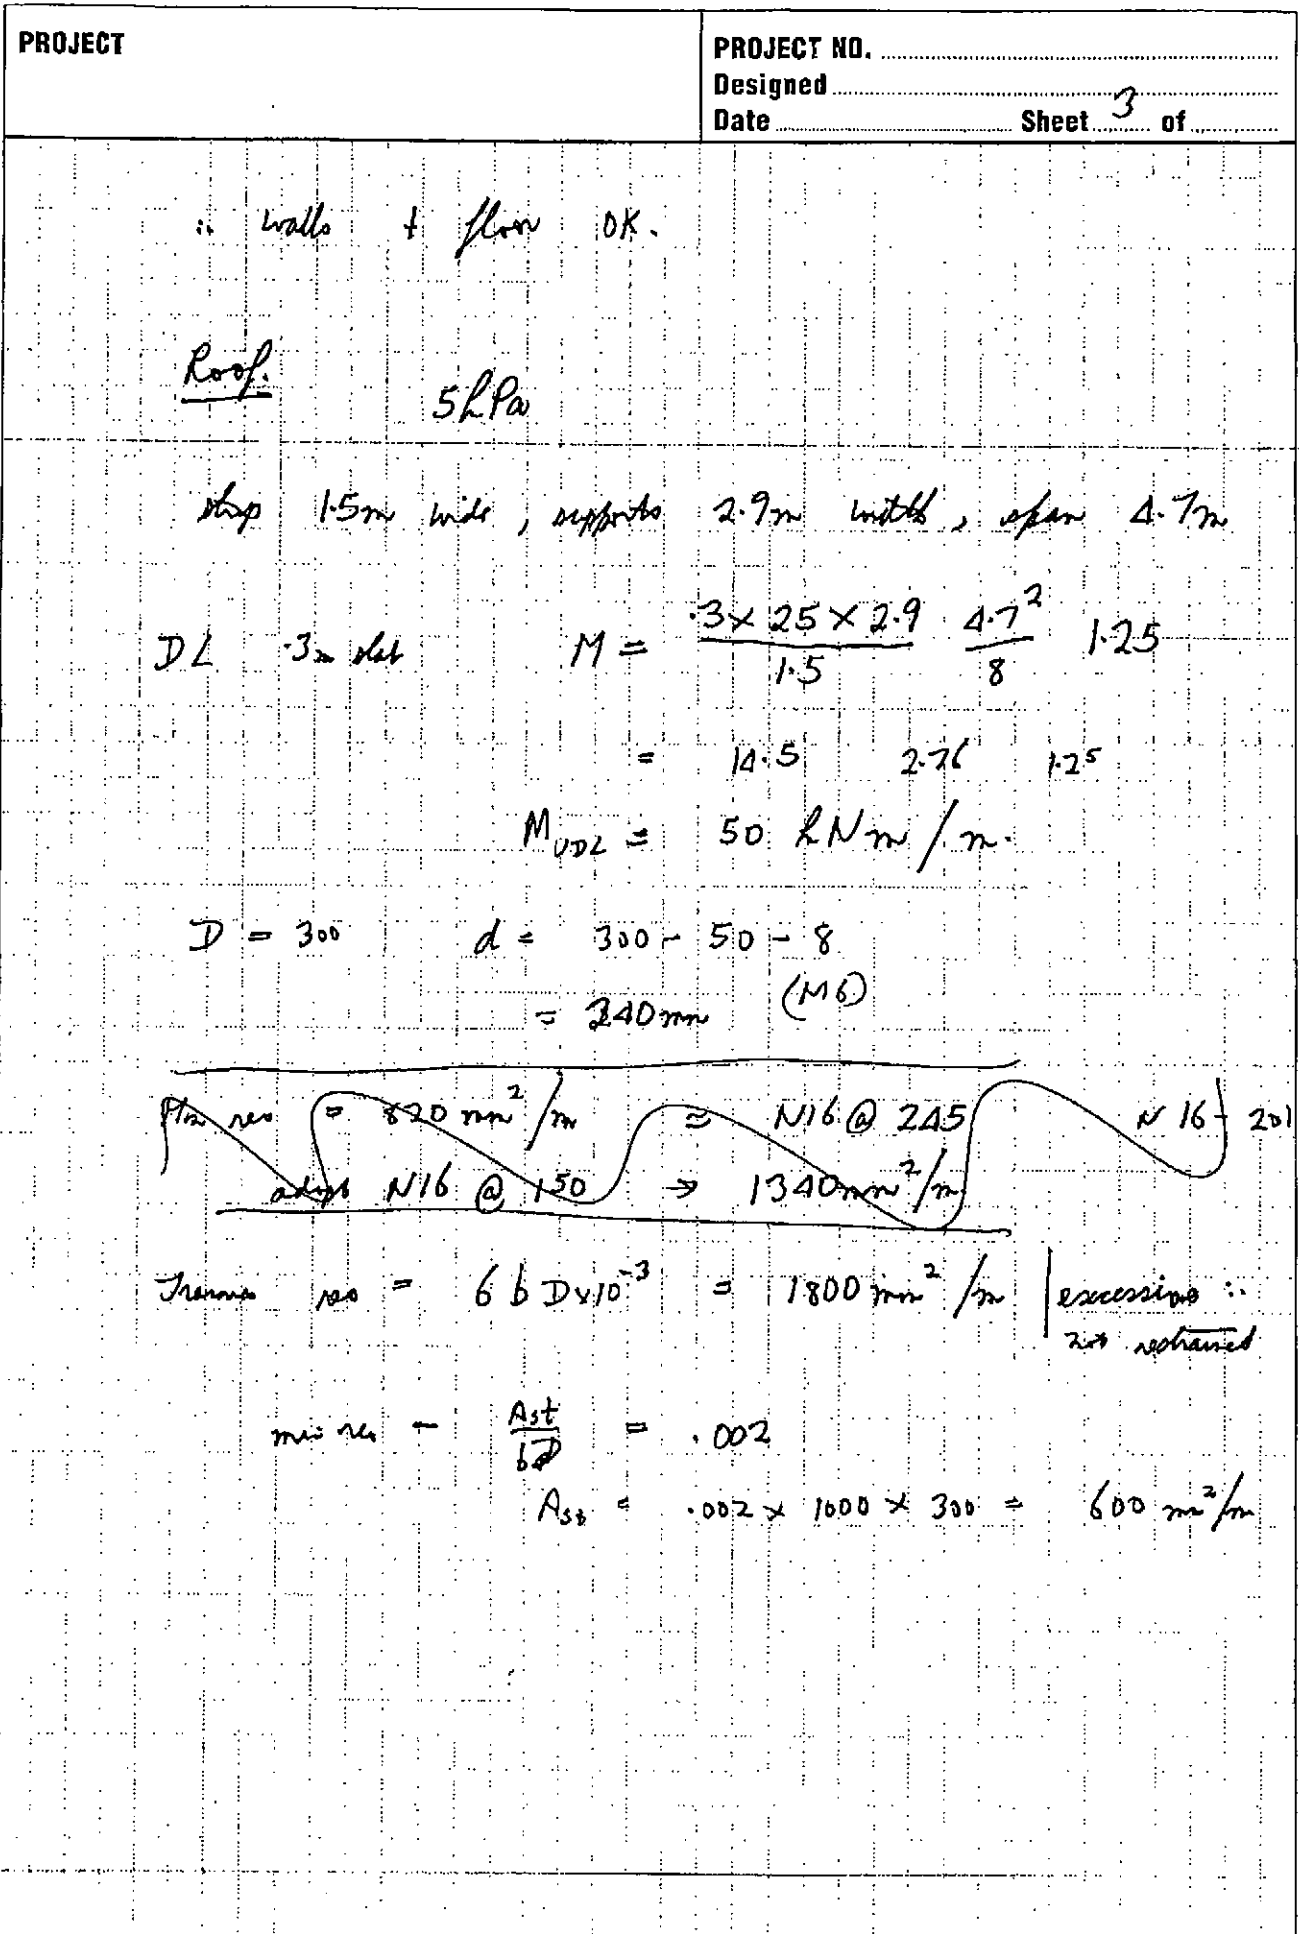 PROJECT
PROJECT NO.
Designed
Date Sheet 3 of
∴ walls + floor OK.
Roof.
5kPa
strip 1.5m wide, supports 2.9m width, span 4.7m
DL .3m slab M = .3 x 25 x 2.9 / 1.5 4.7² / 8 1.25
= 14.5 2.76 1.25
M UDL = 50 kNm/m.
D = 300 d = 300 - 50 - 8
= 240mm (N16)
reo = 820 mm²/m = N16 @ 245 N16 - 201
adopt N16 @ 150 → 1340mm²/m
reo = 6 b D x 10⁻³ = 1800 mm²/m excessive ∴
not restrained
min reo - Ast / bD = .002
Ast = .002 x 1000 x 300 = 600 mm²/m